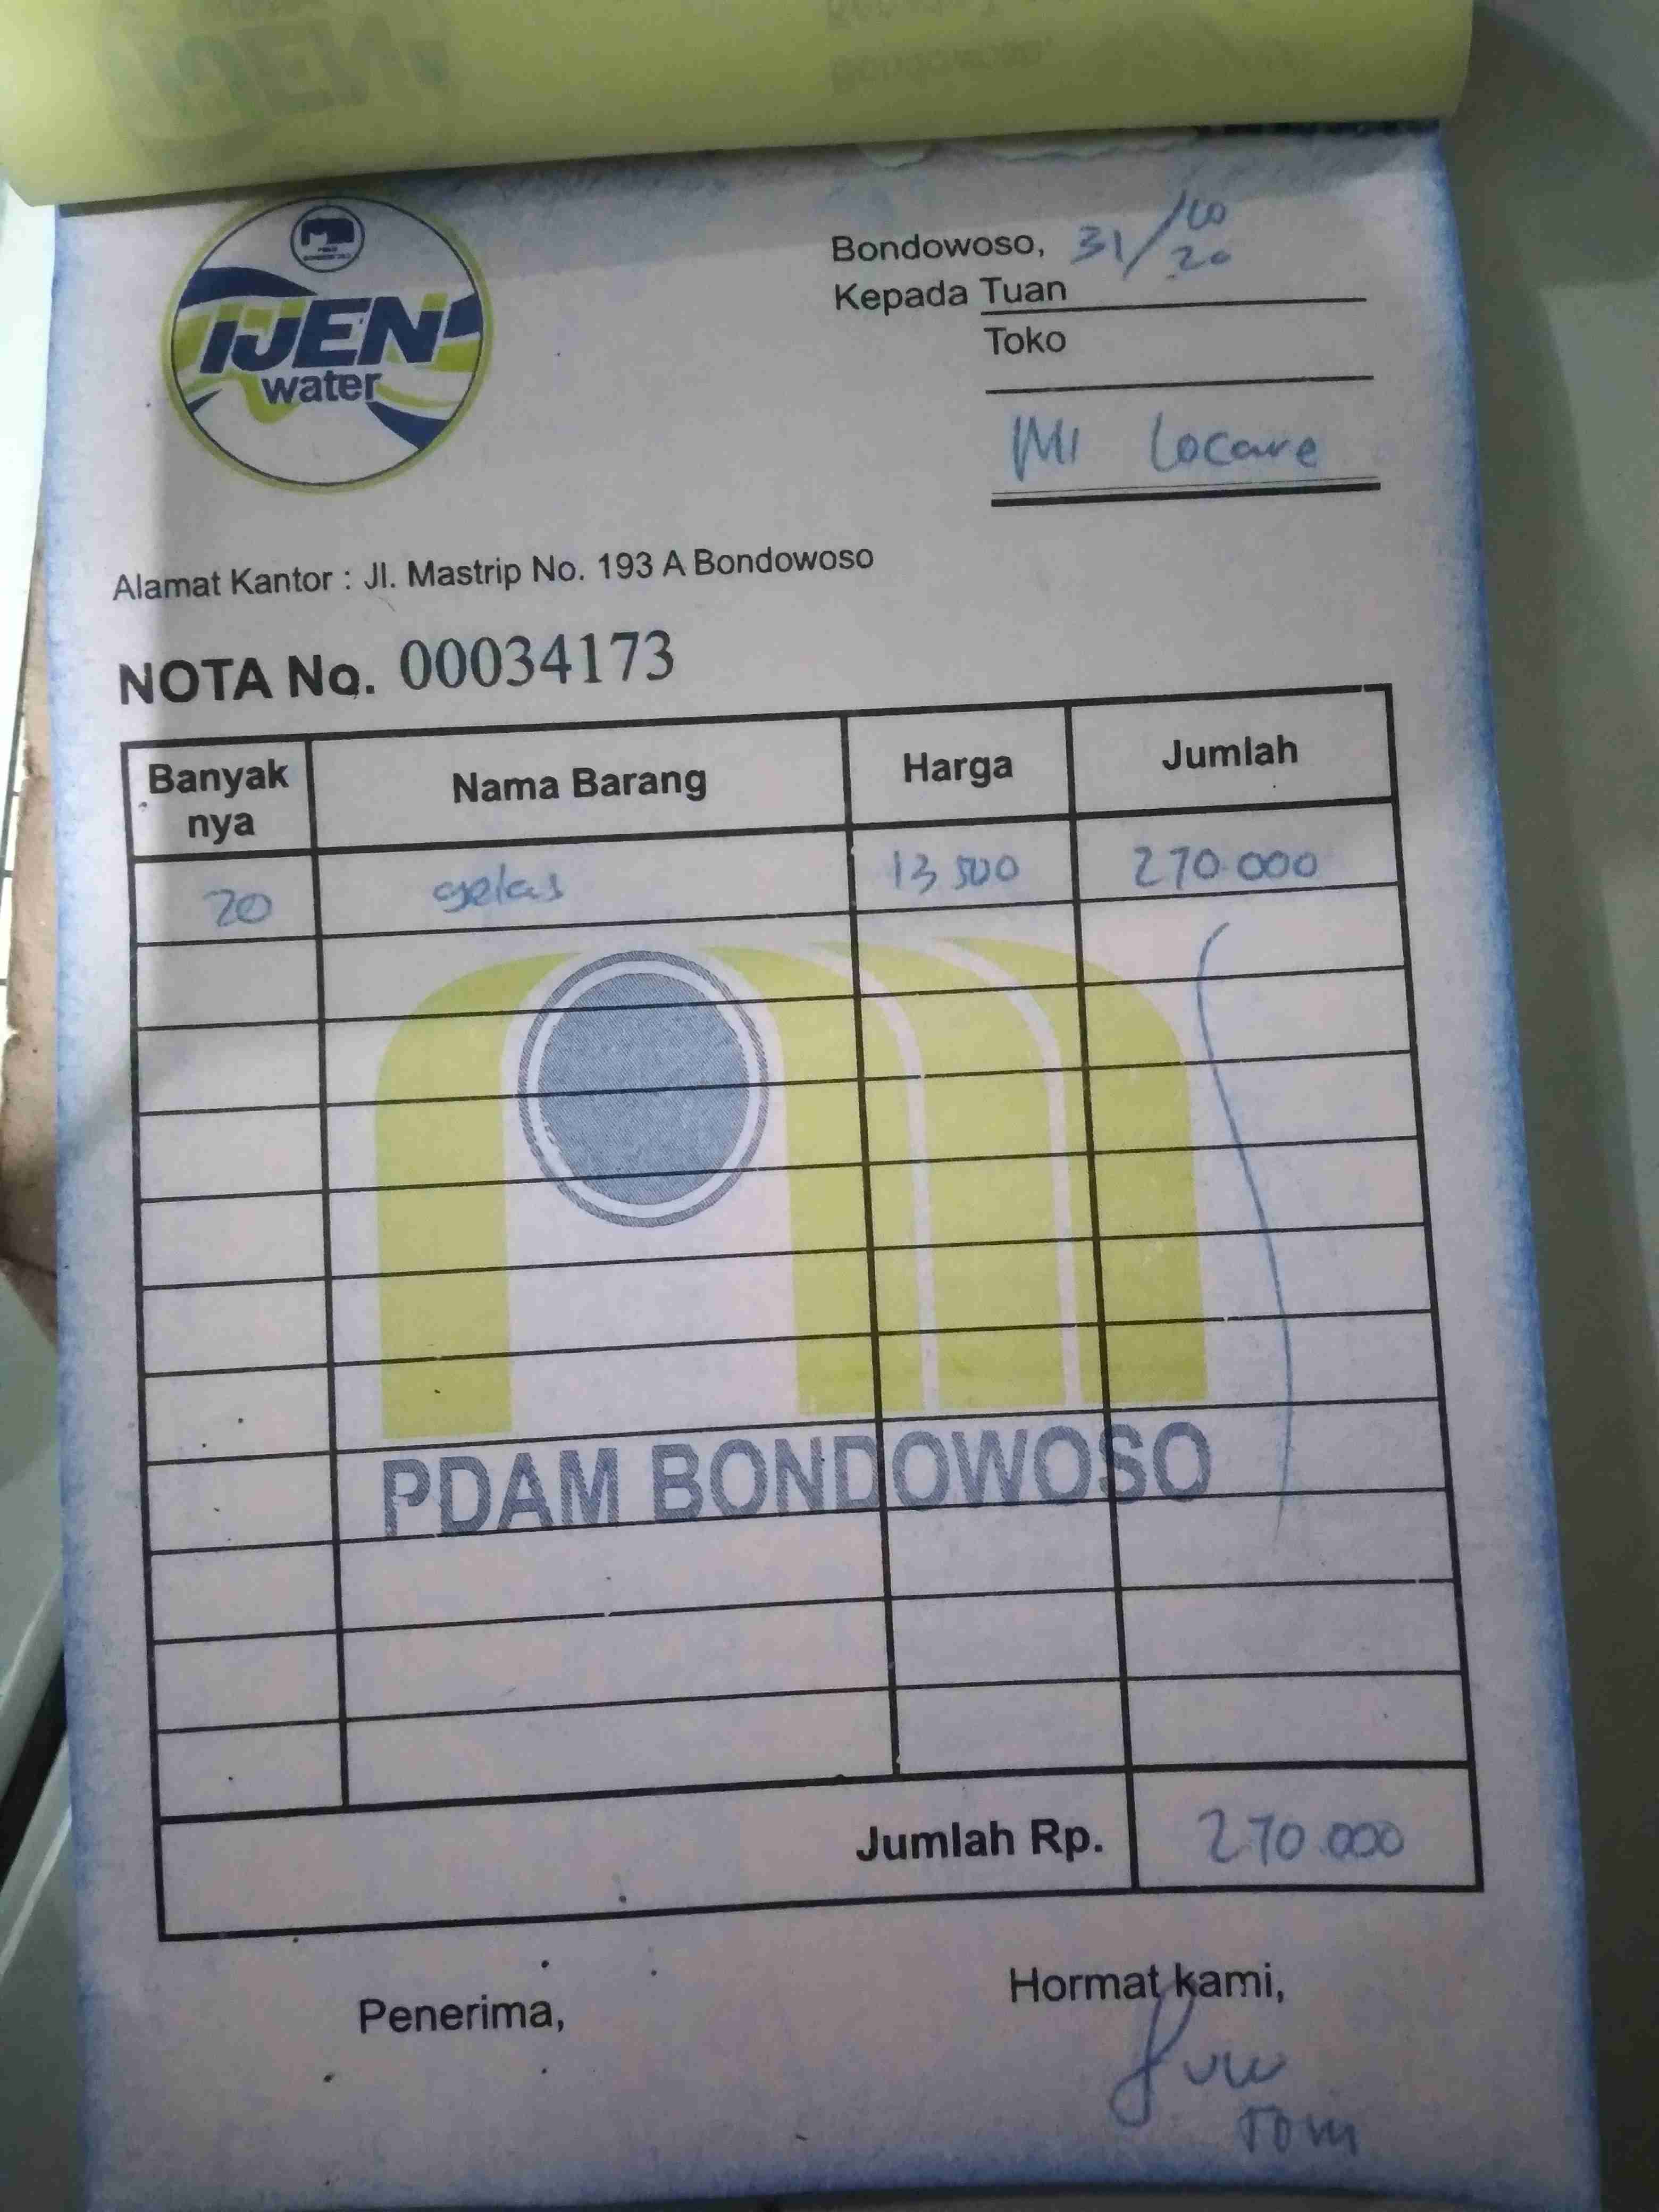 IJEN
water
Bondowoso, 31/10 20
Kepada Tuan
Toko
MI Locare
Alamat Kantor : Jl. Mastrip No. 193 A Bondowoso
NOTA No. 00034173
Banyak nya Nama Barang Harga Jumlah
20 gelas 13 500 270.000
PDAM BONDOWOSO
Jumlah Rp. 270.000
Penerima, Hormat kami,
Tom